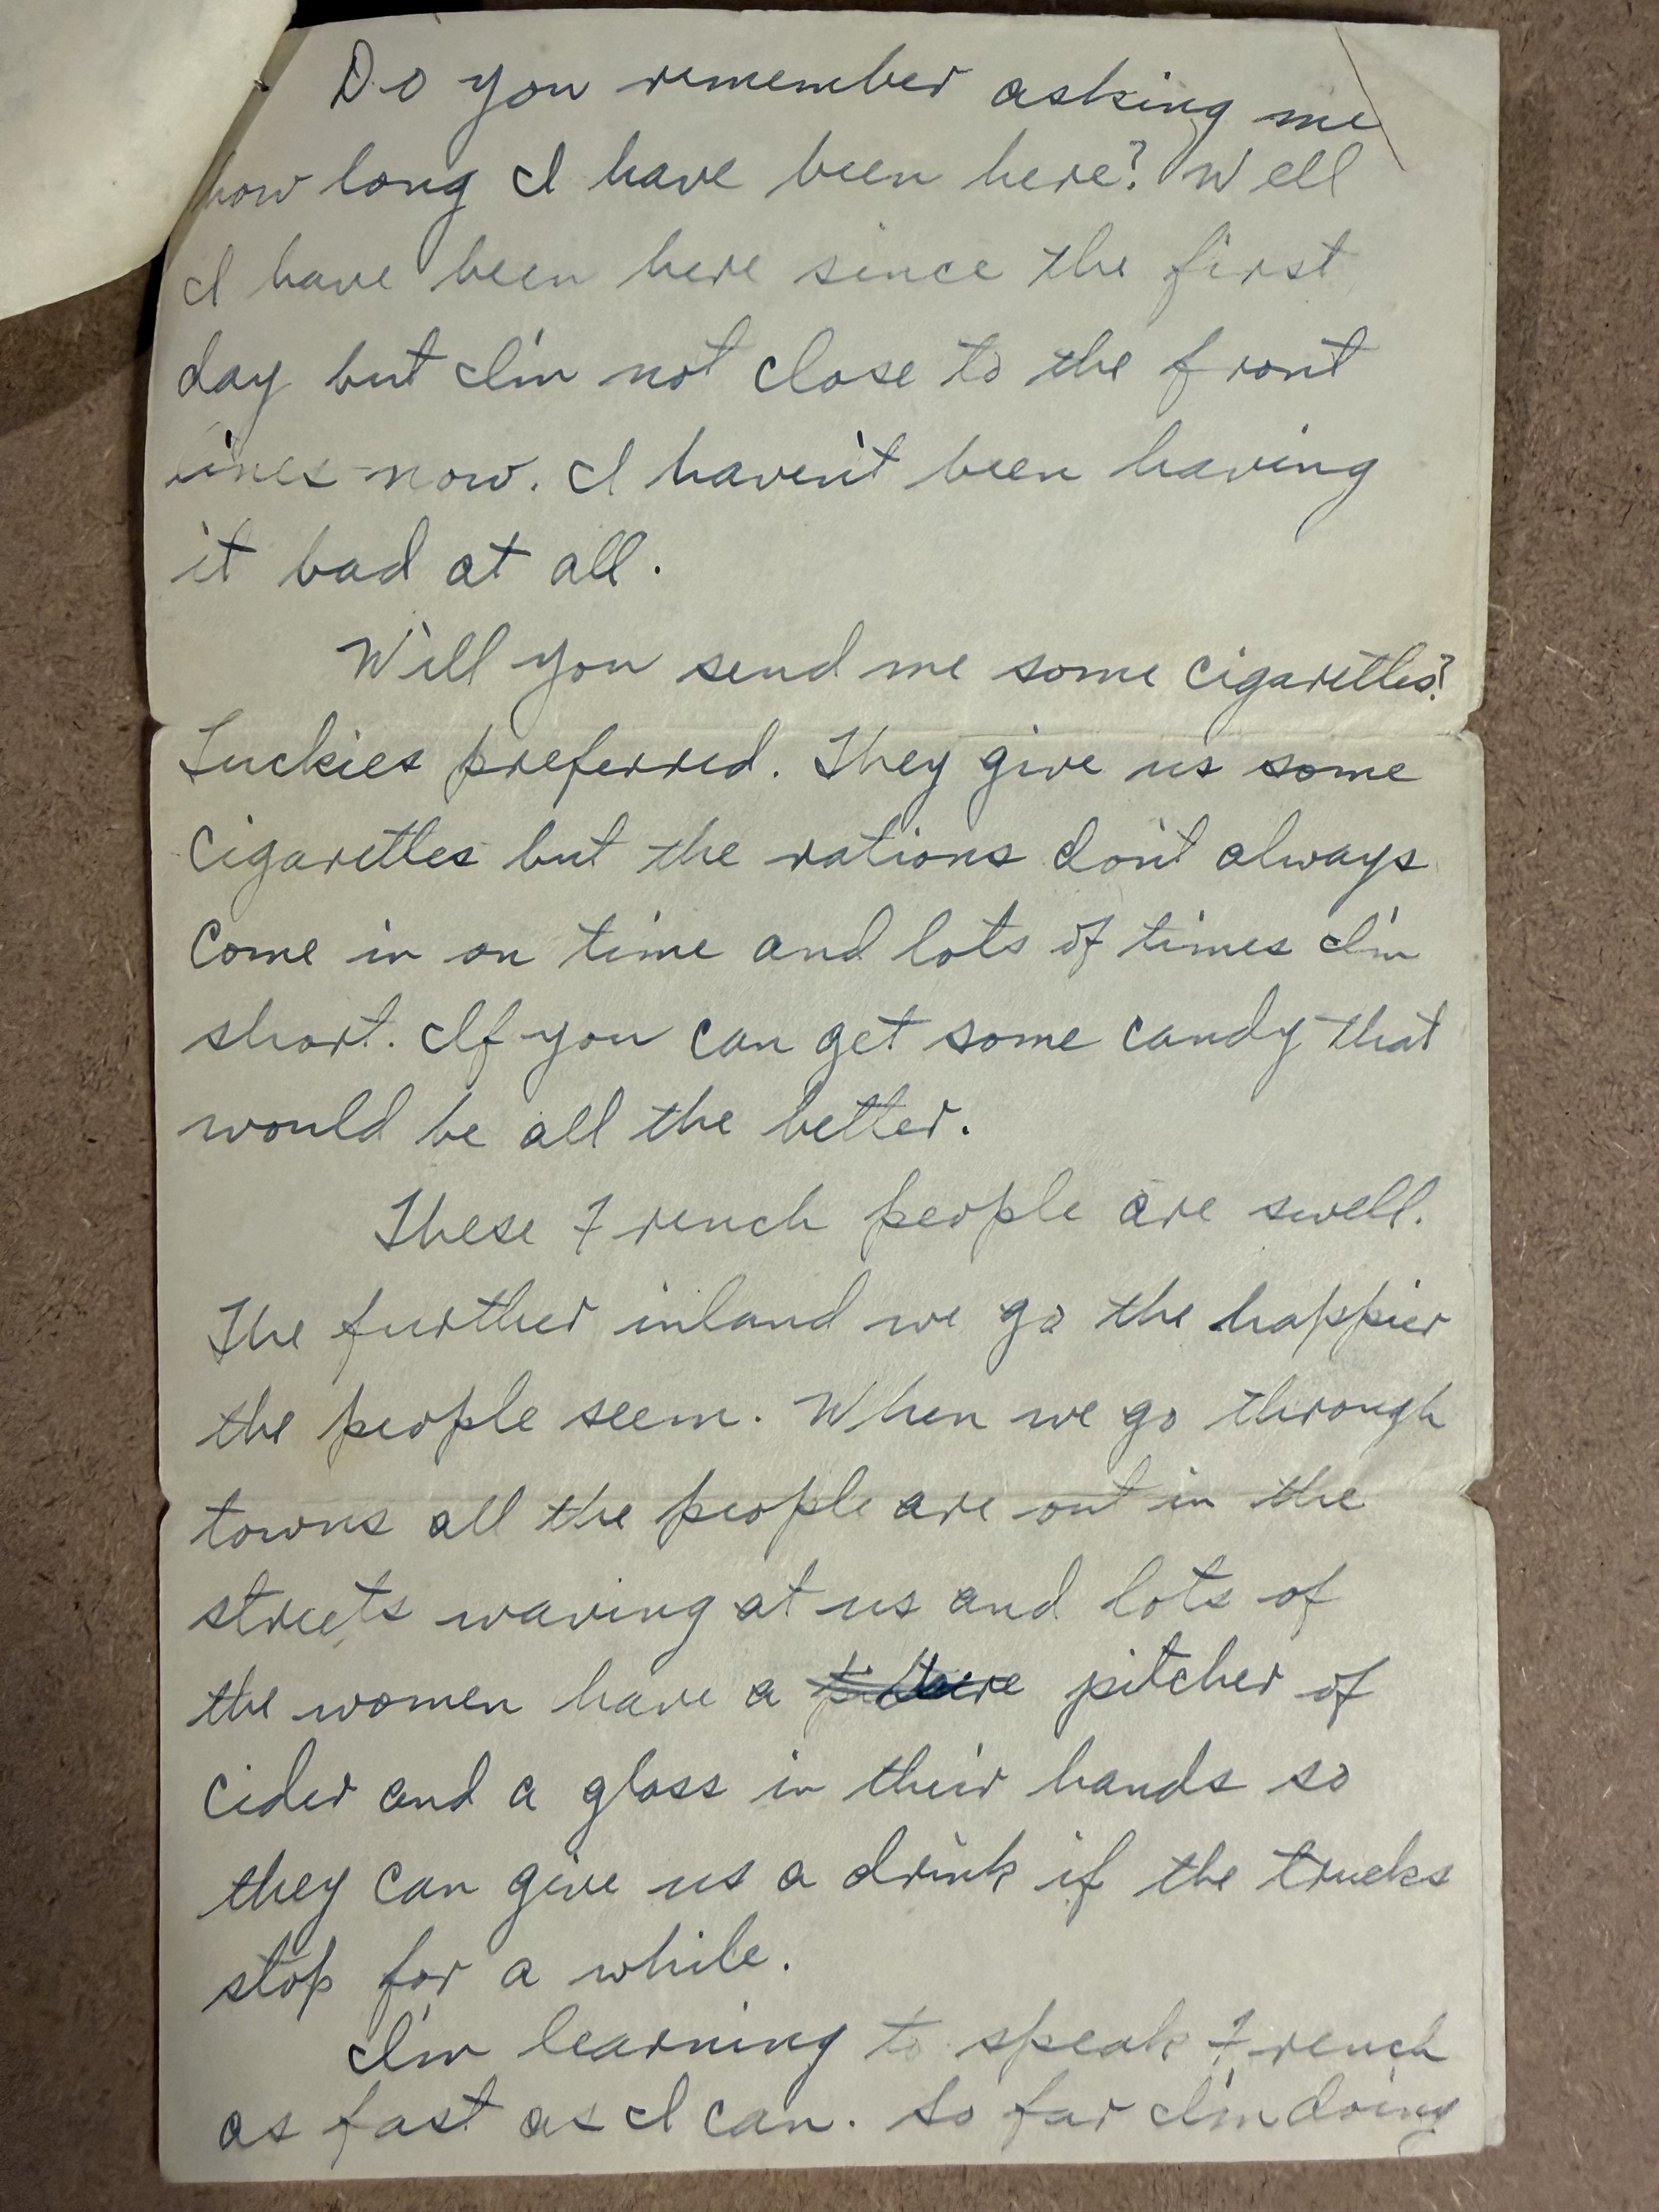 Do you remember asking me
how long I have been here? Well
I have been here since the first
day but I'm not close to the front
lines now. I haven't been having
it bad at all.
Will you send me some cigarettes?
Luckies preferred. They give us some
cigarettes but the rations don't always
come in on time and lots of times I'm
short. If you can get some candy that
would be all the better.
These French people are swell.
The further inland we go the happier
the people seem. When we go through
towns all the people are out in the
streets waving at us and lots of
the women have a pitcher of
cider and a glass in their hands so
they can give us a drink if the trucks
stop for a while.
I'm learning to speak French
as fast as I can. So far I'm doing